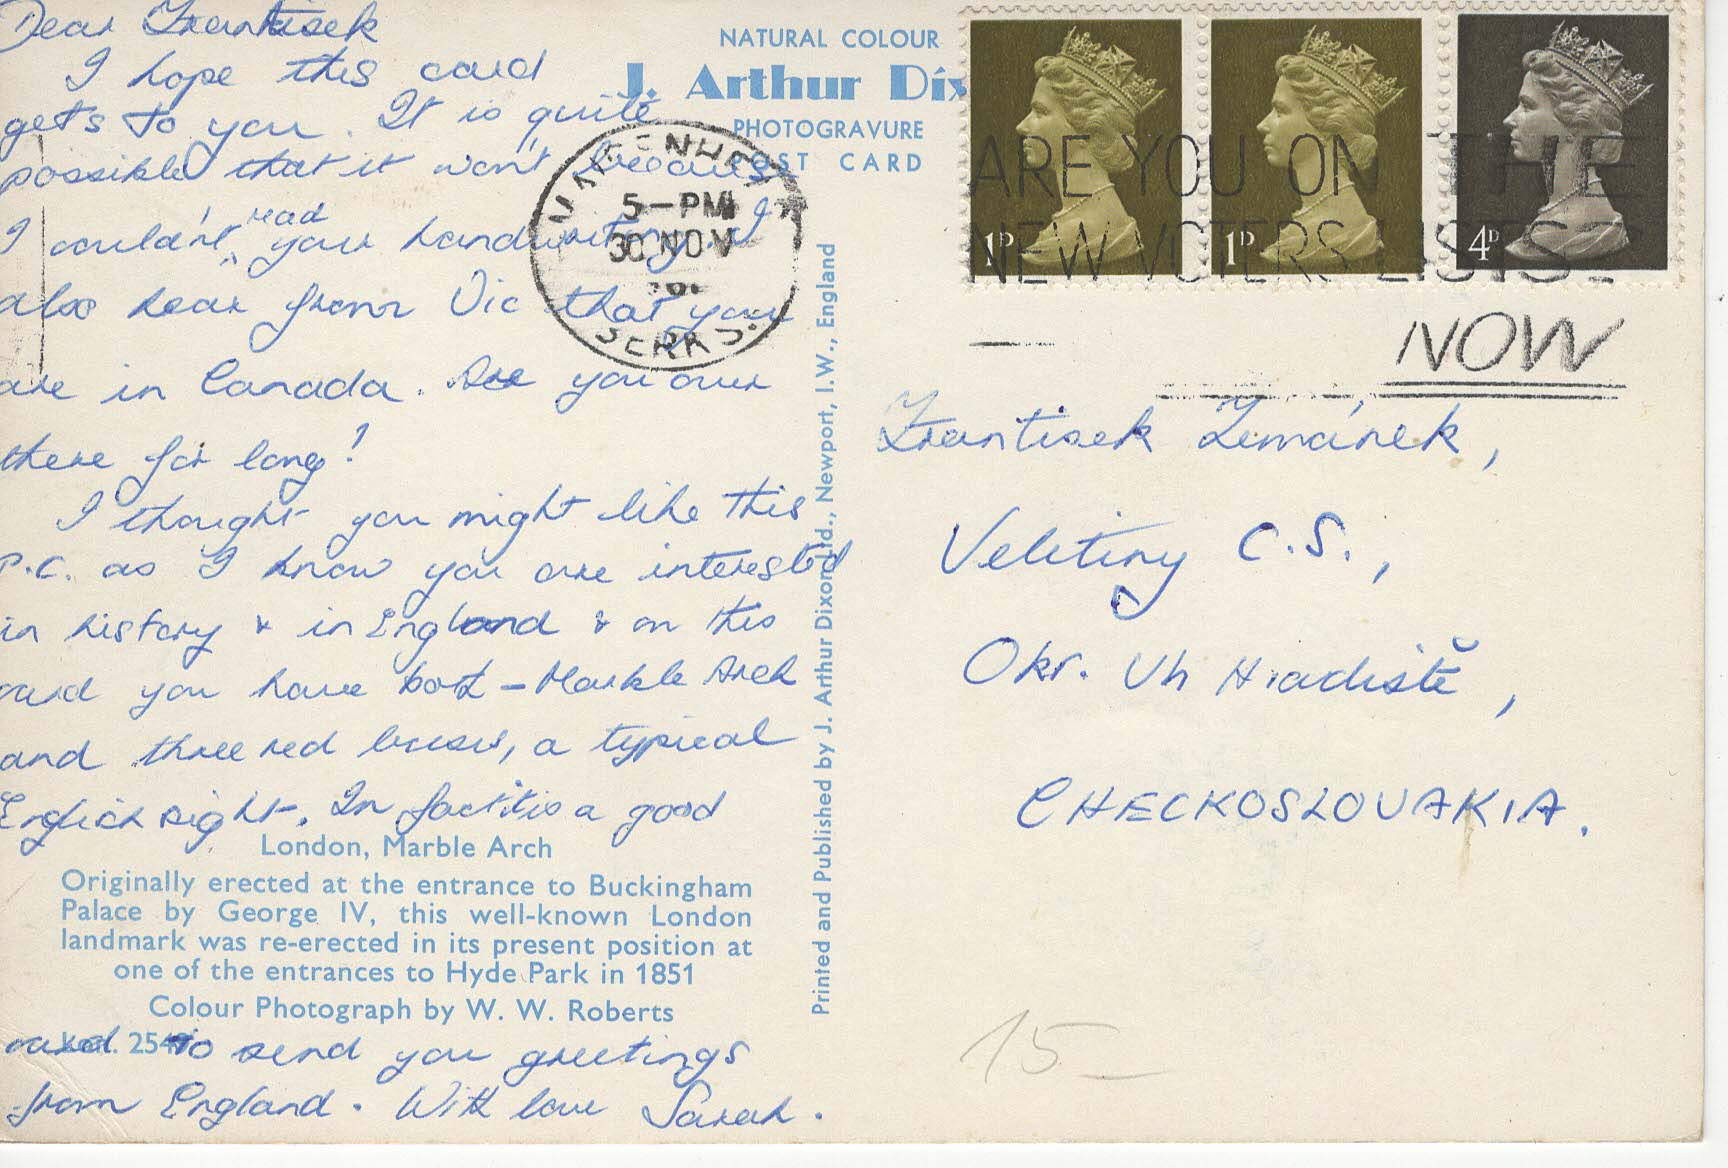 Dear Frantisek
I hope this card
gets to you. It is quite
possible that it won't because
I couldn't read your handwriting. I
also hear from Vic that you
are in Canada. Are you over
there for long!
I thought you might like this
P.C. as I know you are interested
in history & in England & on this
card you have both - Marble Arch
and three red buses, a typical
English sight. In fact it is a good
London, Marble Arch
Originally erected at the entrance to Buckingham
Palace by George IV, this well-known London
landmark was re-erected in its present position at
one of the entrances to Hyde Park in 1851
Colour Photograph by W. W. Roberts
card to send you greetings
from England. With love Sarah.
NATURAL COLOUR
J. Arthur Dix
PHOTOGRAVURE
POST CARD
MAIDENHEAD
5-PM
30 NOV
BERKS.
Printed and Published by J. Arthur Dixon Ltd., Newport, I.W., England
1D
1D
4D
ARE YOU ON THE
NEW VOTERS LISTS?
NOW
Frantisek Zemánek,
Veletiny C.S.,
Okr. Uh Hradiště,
CHECKOSLOVAKIA.
15